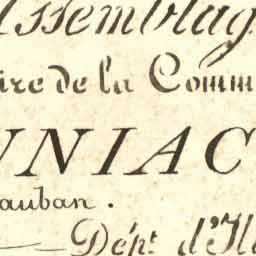 Assemblag
ire de la Comm
UNIAC
auban.
Dépt. d'Il